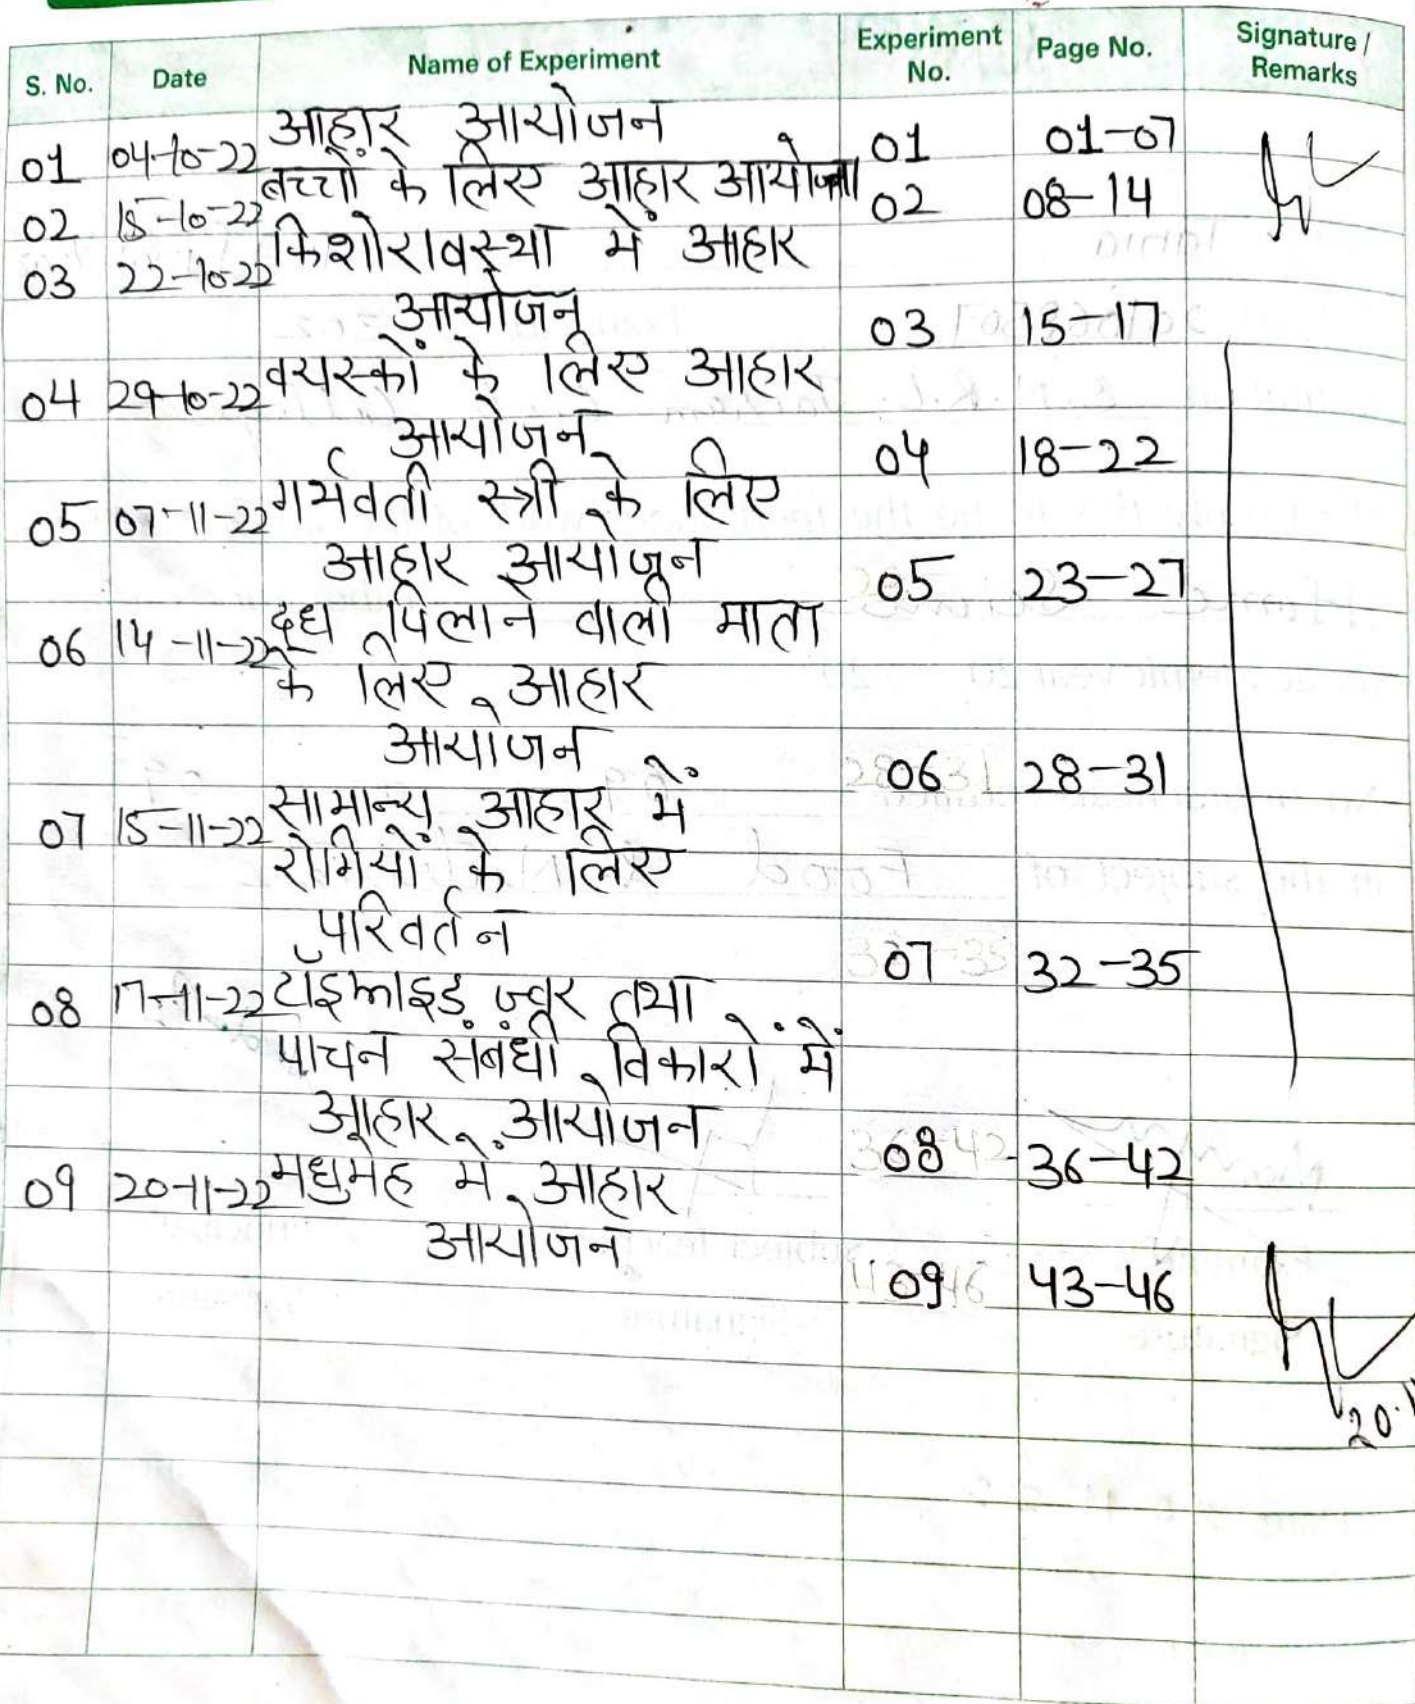 S. No. Date Name of Experiment Experiment No. Page No. Signature / Remarks
01 04-10-22 आहार आयोजन 01 01-07
02 15-10-22 बच्चों के लिए आहार आयोजन 02 08-14
03 22-10-22 किशोरावस्था में आहार
आयोजन 03 15-17
04 29-10-22 वयस्कों के लिए आहार
आयोजन 04 18-22
05 07-11-22 गर्भवती स्त्री के लिए
आहार आयोजन 05 23-27
06 14-11-22 दूध पिलाने वाली माता
के लिए आहार
आयोजन 06 28-31
07 15-11-22 सामान्य आहार में
रोगियों के लिए
परिवर्तन 07 32-35
08 17-11-22 टॉइफाइड ज्वर तथा
पाचन संबंधी विकारों में
आहार आयोजन 08 36-42
09 20-11-22 मधुमेह में आहार
आयोजन 09 43-46
20